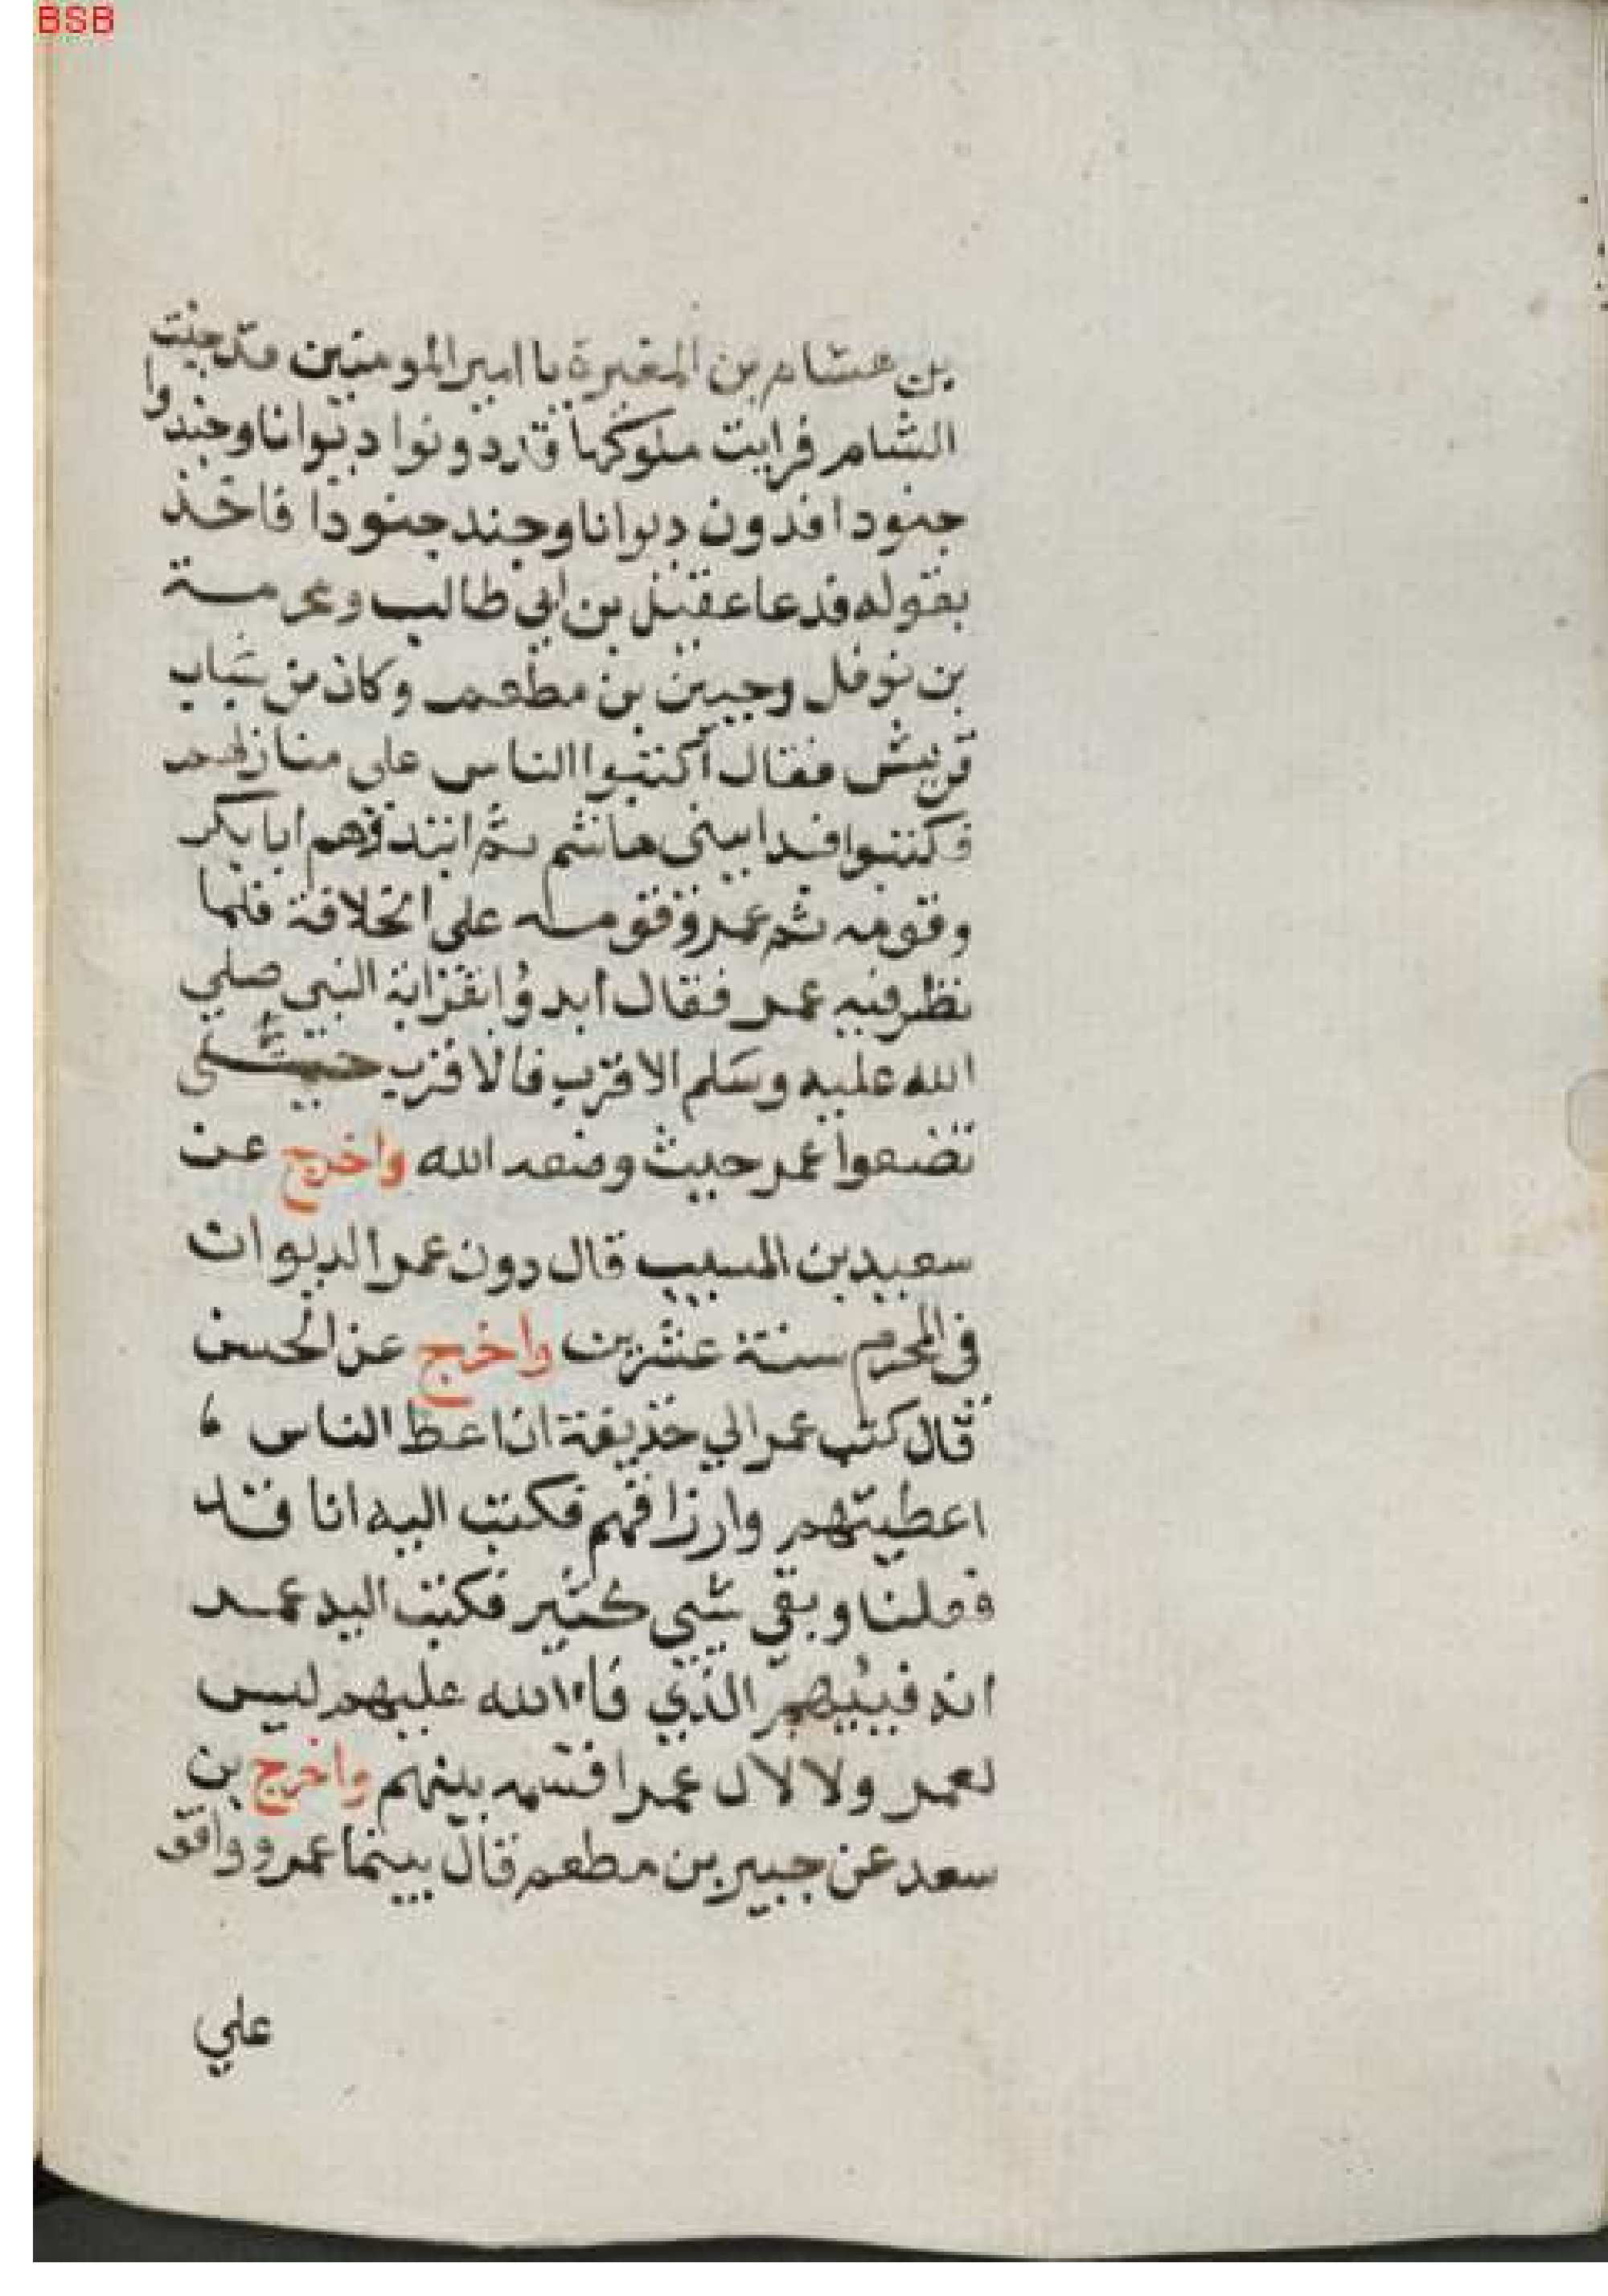 BSB
بن هشام بن المغيرة يا امير المومنين قد جئت
الشام فرايت ملوكها قد دونوا ديوانا وجندوا
جنودا فدون ديوانا وجند جنودا فاخذ
بقوله فدعا عقيل بن ابي طالب ومخرمة
بن نوفل وجبير بن مطعم وكان من شباب
قريش فقال اكتبوا الناس على منازلهم
فكتبوا فبدا ببني هاشم ثم اتبعوهم ابا بكر
وقومه ثم عمر وقومه على الخلافة فلما
نظر فيه عمر فقال ابدؤا بقرابة النبي صلي
الله عليه وسلم الاقرب فالاقرب حتى
تضعوا عمر حيث وضعه الله واخرج عن
سعيد بن المسيب قال دون عمر الديوان
في المحرم سنة عشرين واخرج عن الحسن
قال كتب عمر الي حذيفة ان اعط الناس
اعطيتهم وارزاقهم فكتب اليه انا قد
فعلنا وبقي شيي كثير فكتب اليه عمر
انه فييهم الذي فاء الله عليهم ليس
لعمر ولا لال عمر اقسمه بينهم واخرج بن
سعد عن جبير بن مطعم قال بينما عمر وواقف
علي